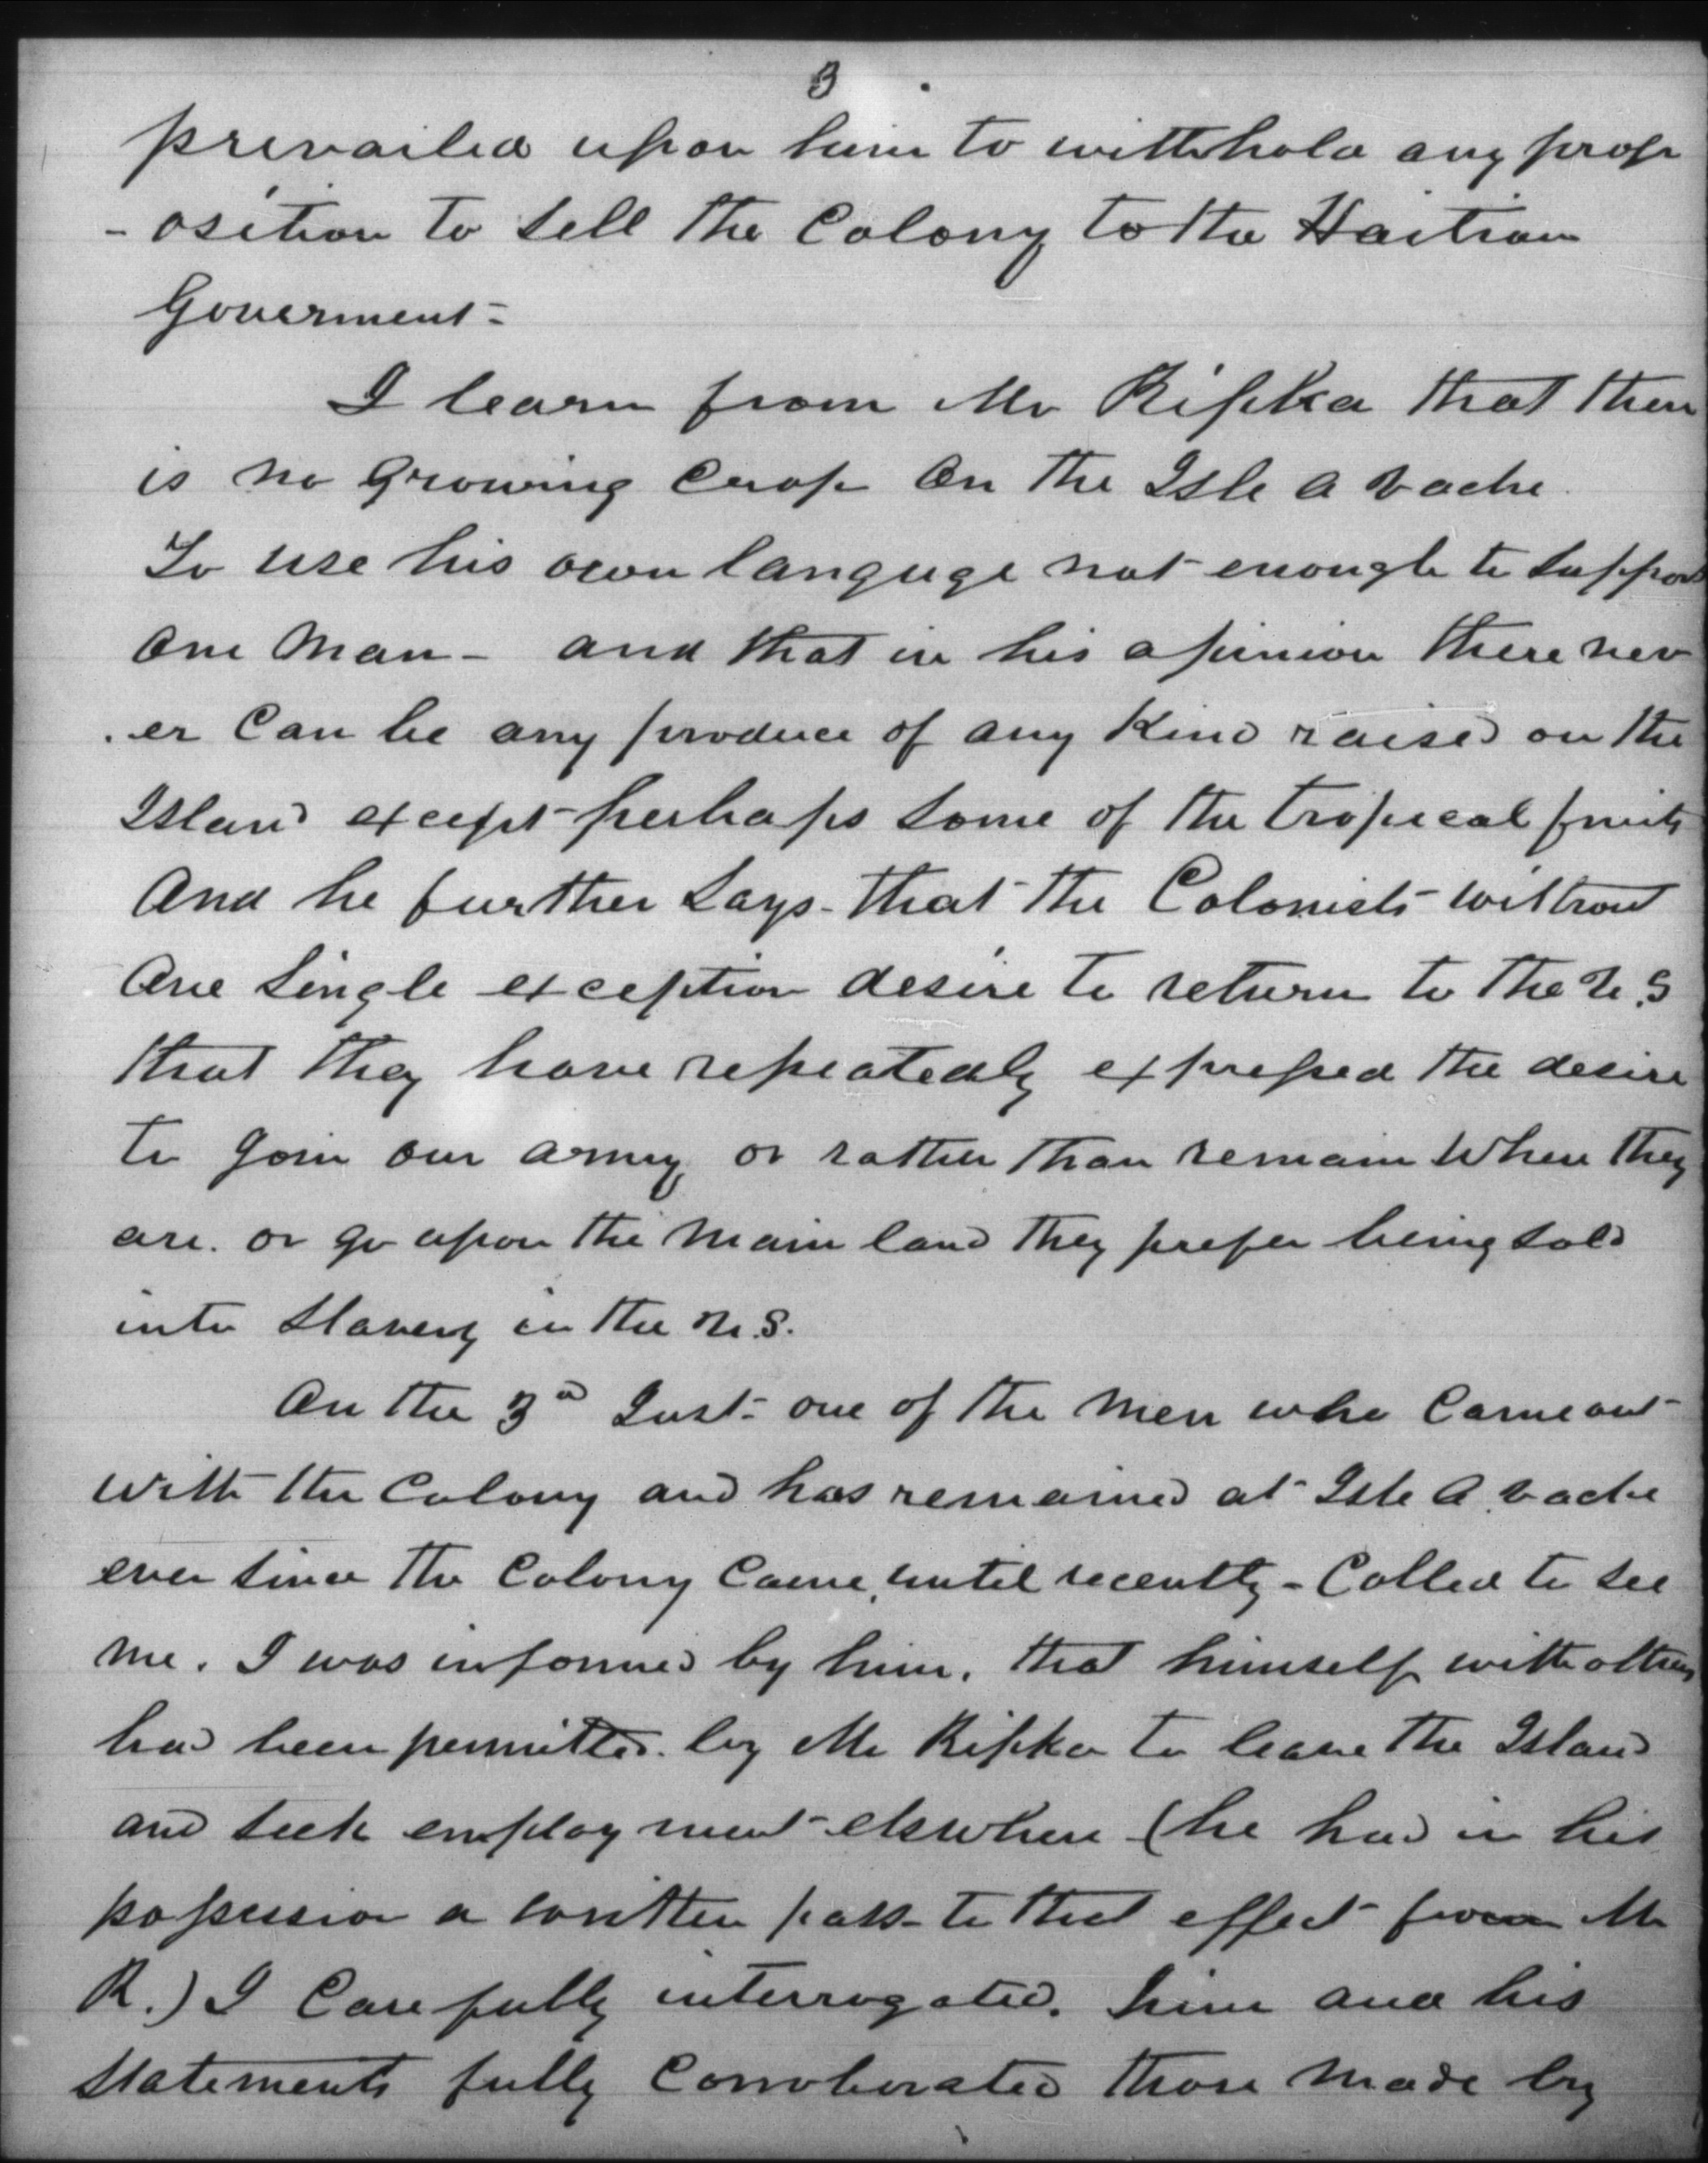 3
prevailed upon him to withhold any prop
- osition to sell the Colony to the Haitian
Goverment -
I learn from Mr Ripka that there
is no growing Crop On the Isle a vache.
To use his own languge not enough to support
One Man - and that in his opinion there nev
. er Can be any produce of any Kind raised on the
Island except perhaps some of the tropical fruits
And he further Says - that the Colonists without
One Single exception desire to return to the U.S
that they have repeatedly expressed the desire
to Join our army, or rather than remain Where they
are. or go upon the Main land they prefer being sold
into Slavery in the U.S.
On the 3d Inst - one of the Men who Came out
with the Colony and has remained at Isle A vache
ever Since the Colony Came, until recently - Called to see
me. I was informed by him, that himself with others
had been permitted by Mr Ripka to leave the Island
and seek employment elswhere (he had in his
possession a written pass to that effect from Mr
R.) I Carefully interrogated. him and his
Statements fully Corroberated those Made by